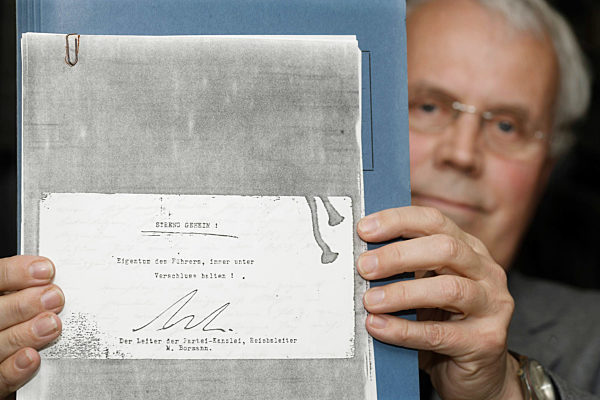 STRENG GEHEIM !
Eigentum des Führers, immer unter
Verschluss halten !
Der Leiter der Partei-Kanzlei, Reichsleiter
M. Bormann.